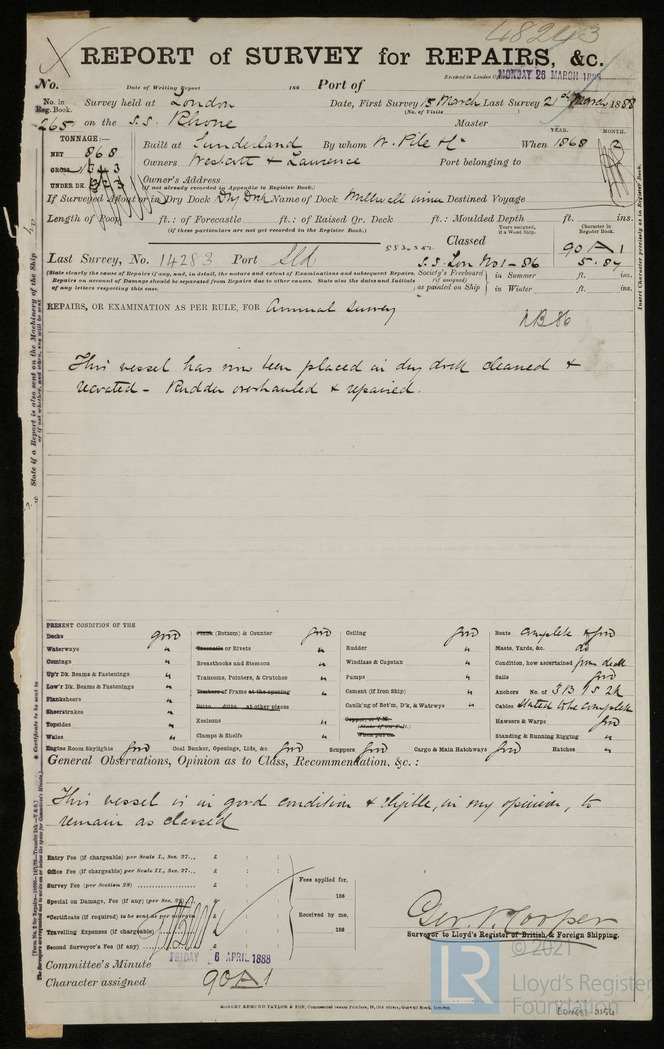 48243
REPORT of SURVEY for REPAIRS, &c.
Received in London Office MONDAY 26 MARCH 1888
No.
Date of Writing Report 188 Port of
No. in Reg. Book. Survey held at London Date, First Survey 15 March Last Survey 21st March 1888
(No. of Visits
265 on the S.S. Rhone Master
TONNAGE:—
YEAR. MONTH.
NET 868
Built at Sunderland By whom W. Pile & Co When 1868 2
GROSS
Owners Westcott & Laurence Port belonging to
Owner's Address
UNDER DK.
(if not already recorded in Appendix to Register Book.)
If Surveyed Afloat or in Dry Dock Dry Dock Name of Dock Millwall Destined Voyage
Length of Poop ft.: of Forecastle ft.: of Raised Qr. Deck ft.: Moulded Depth ft. ins.
(if these particulars are not yet recorded in the Register Book.)
Years assigned, if a Wood Ship.
Character in Register Book.
Classed 90 A 1
Last Survey, No. 14283 Port Sld S.S. Lon No1-86 5.87
(State clearly the cause of Repairs if any, and, in detail, the nature and extent of Examinations and subsequent Repairs. Society's Freeboard in Summer ft. ins.
Repairs on account of Damage should be separated from Repairs due to other causes. State also the dates and initials (if assigned) as painted on Ship in Winter ft. ins.
of any letters respecting this case.
REPAIRS, OR EXAMINATION AS PER RULE, FOR annual survey
NB 86
This vessel has now been placed in dry dock cleaned &
recoated – Rudder overhauled & repaired.
PRESENT CONDITION OF THE
Decks good
Waterways "
Comings "
Up'r Dk. Beams & Fastenings "
Low'r Dk. Beams & Fastenings "
Planksheers "
Sheerstrakes "
Topsides "
Wales "
Engine Room Skylights good
Plank (Bottom) & Counter good
Treenails or Rivets "
Breasthooks and Stemson "
Transoms, Pointers, & Crutches "
Timbers of Frame at the opening "
Ditto ditto at other places
Keelsons "
Clamps & Shelfs "
Coal Bunker, Openings, Lids, &c. good
Ceiling good
Rudder "
Windlass & Capstan "
Pumps "
Cement (if Iron Ship) "
Caulk'ng of Bot'm, D'k, & Watrwys "
Copper, or Y.M.
(State if on Felt.)
When put on
Scuppers good
Cargo & Main Hatchways good
Boats complete & good
Masts, Yards, &c. do
Condition, how ascertained from deck
Sails good
Anchors No. of 3B 1S 2K
Cables Stated to be complete
Hawsers & Warps good
Standing & Running Rigging "
Hatches "
General Observations, Opinion as to Class, Recommendation, &c.:
This vessel is in good condition & eligible, in my opinion, to
remain as classed
Entry Fee (if chargeable) per Scale I., Sec. 27... £ : :
Office Fee (if chargeable) per Scale II., Sec. 27... £ : :
Survey Fee (per Section 28) £ : :
Special on Damage, Fee (if any) (per Sec. 28) £ : :
*Certificate (if required) to be sent as per margin £ : :
Travelling Expenses (if chargeable) £ : :
Second Surveyor's Fee (if any) £ : :
Fees applied for,
188
Received by me,
188
Geo. Cooper
Surveyor to Lloyd's Register of British & Foreign Shipping.
Committee's Minute FRIDAY 6 APRIL 1888
Character assigned 90 A 1
ROBERT EDMUND TAYLOR & SON, Commercial Steam Printers, 19, Old Street, Goswell Road, London.
LR © 2021
Lloyd's Register
Foundation